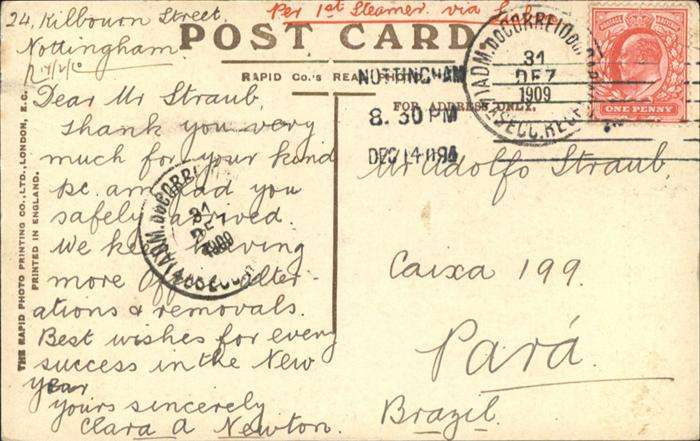 24, Kilbourn Street.
Nottingham
Per 1st Steamer via
POST CARD
RAPID Co.'s REAL
FOR ADDRESS ONLY.
THE RAPID PHOTO PRINTING CO., LTD., LONDON, E.C.
PRINTED IN ENGLAND.
NOTTINGHAM
8.30 PM
DEC 14
ADM. DO CORREIO
31
DEZ
1909
ONE PENNY
Dear Mr Straub,
Thank you very
much for your kind
pc. am glad you
safely arrived.
We keep having
more office alter-
ations & removals.
Best wishes for every
success in the New
Year
yours sincerely
Clara A Newton.
ADM. DO CORREI
31
1909
Mr Adolfo Straub,
Caixa 199.
Pará.
Brazil.